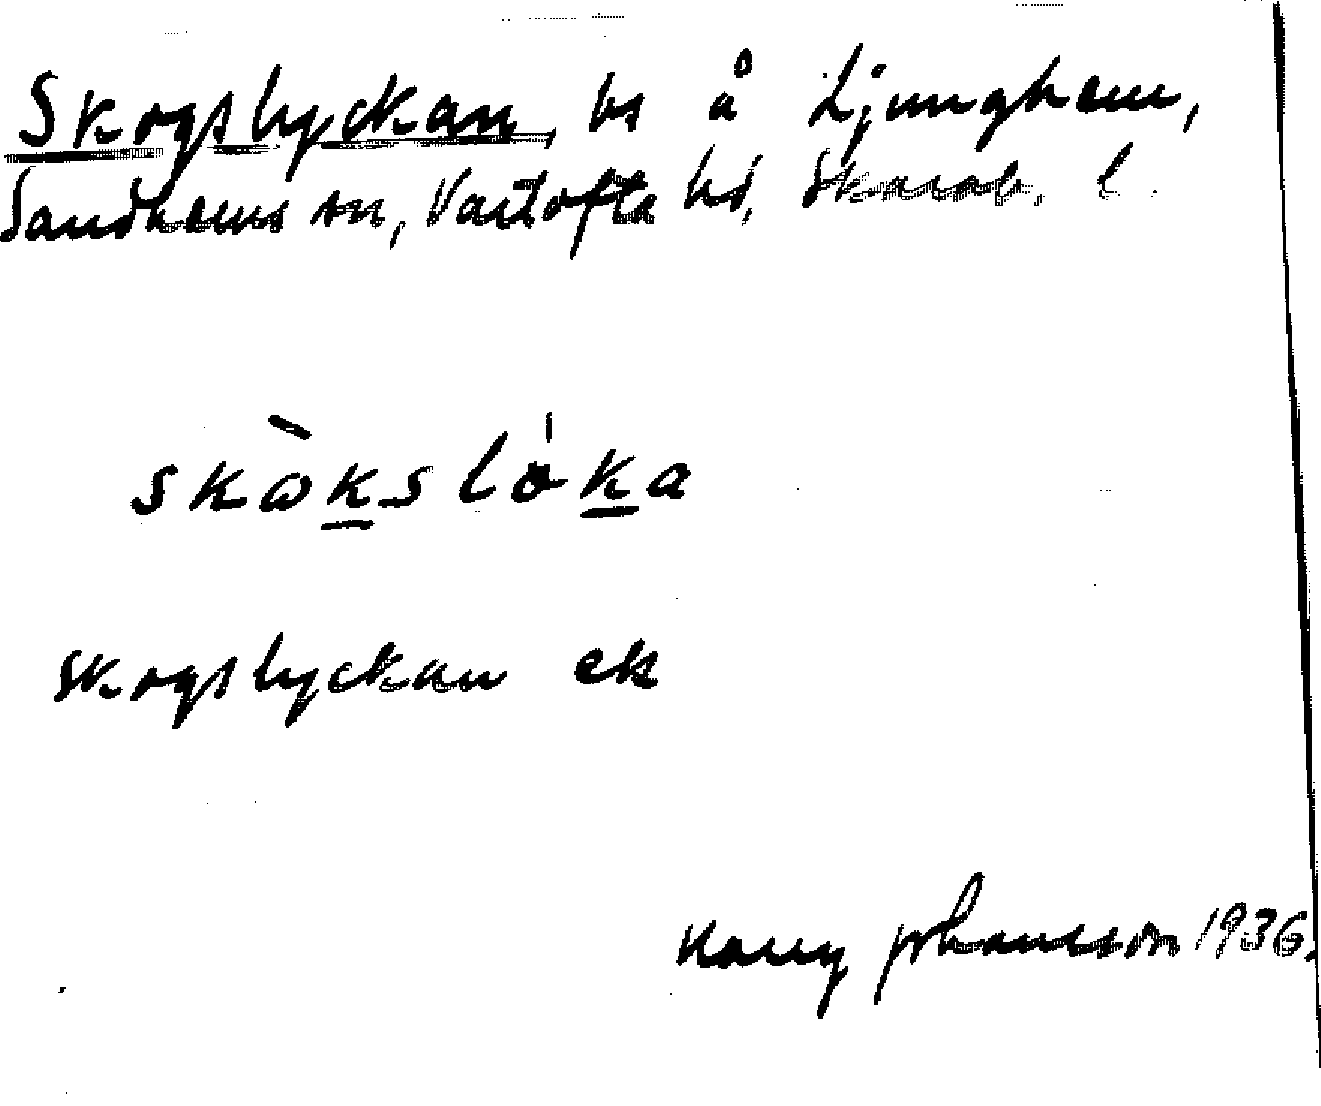 Skogslyckan, bs å Ljunghem,
Sandhems sn, Vartofta hd, Skarab. l.
skòkslȯka
skogslyckan ek
Harry Johansson 1936.